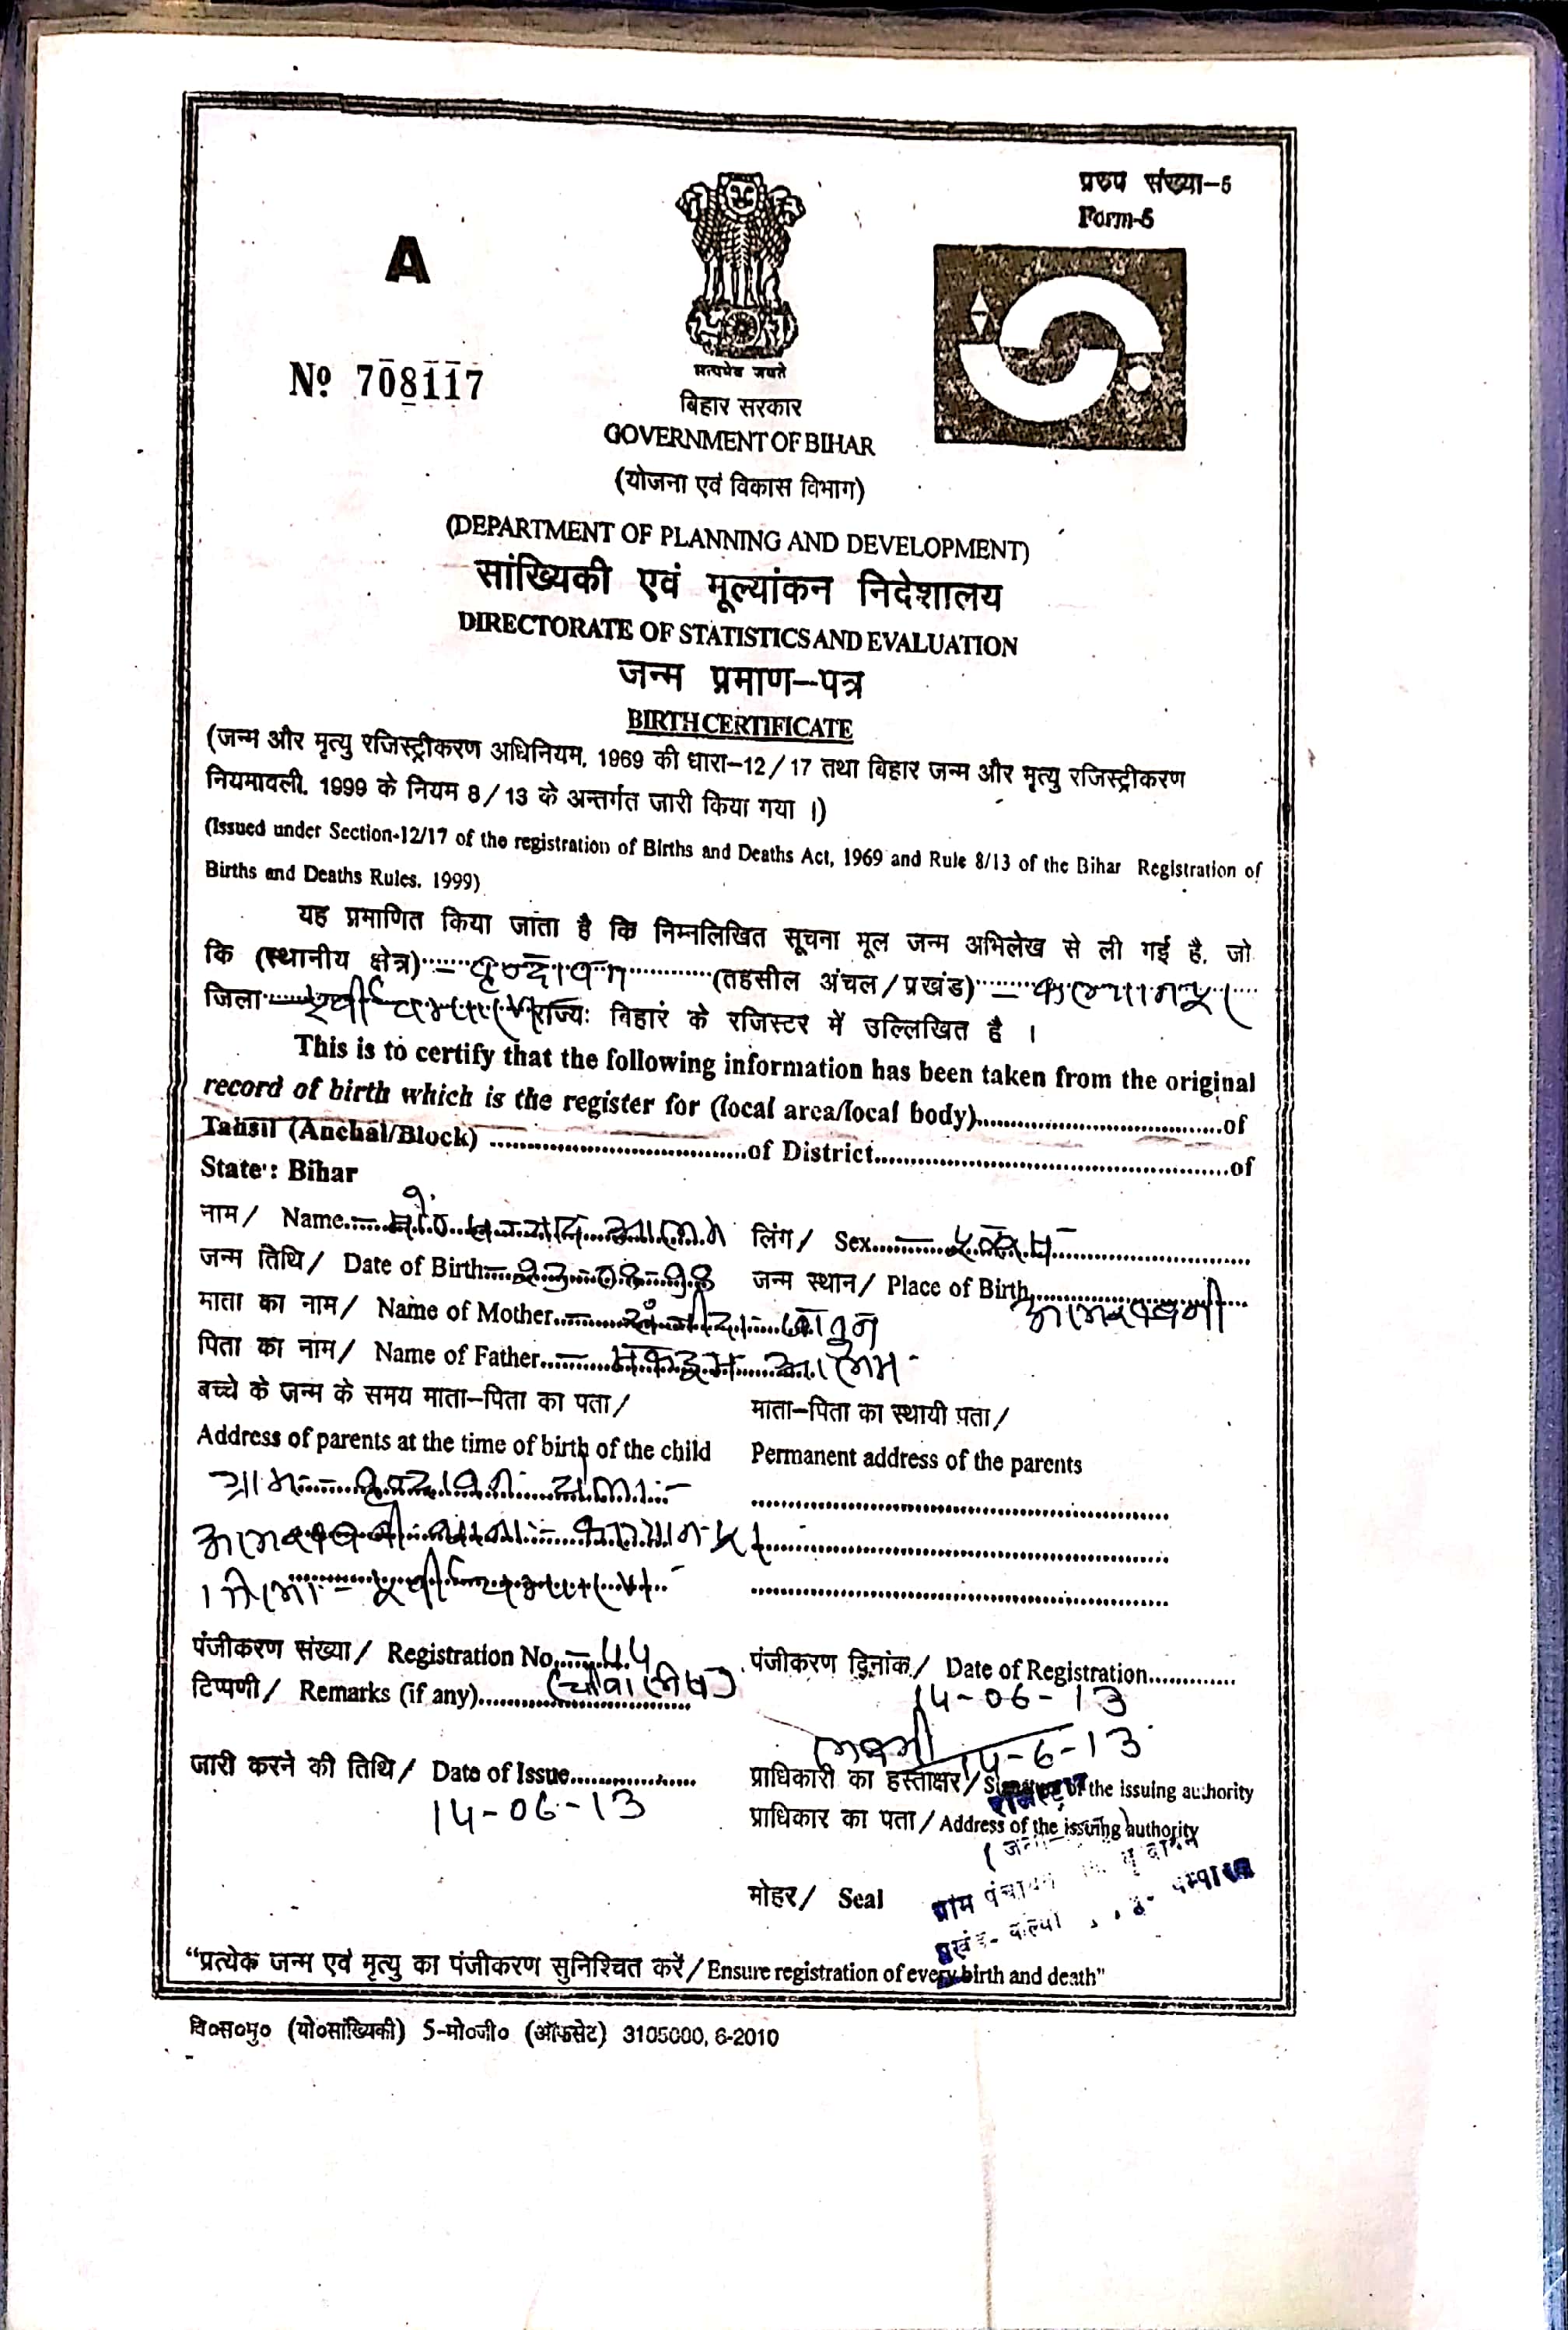 प्ररुप संख्या-5
Form-5
A
№ 708117
सत्यमेव जयते
बिहार सरकार
GOVERNMENT OF BIHAR
(योजना एवं विकास विभाग)
(DEPARTMENT OF PLANNING AND DEVELOPMENT)
सांख्यिकी एवं मूल्यांकन निदेशालय
DIRECTORATE OF STATISTICS AND EVALUATION
जन्म प्रमाण-पत्र
BIRTH CERTIFICATE
(जन्म और मृत्यु रजिस्ट्रीकरण अधिनियम, 1969 की धारा-12/17 तथा बिहार जन्म और मृत्यु रजिस्ट्रीकरण
नियमावली, 1999 के नियम 8/13 के अन्तर्गत जारी किया गया ।)
(Issued under Section-12/17 of the registration of Births and Deaths Act, 1969 and Rule 8/13 of the Bihar Registration of
Births and Deaths Rules. 1999)
यह प्रमाणित किया जाता है कि निम्नलिखित सूचना मूल जन्म अभिलेख से ली गई है, जो
कि (स्थानीय क्षेत्र) - वृन्दावन (तहसील अंचल/प्रखंड) - कल्यानपुर
जिला - पूर्वी चम्पारण राज्यः बिहार के रजिस्टर में उल्लिखित है ।
This is to certify that the following information has been taken from the original
record of birth which is the register for (local area/local body)..........of
Tahsil (Anchal/Block) ..........of District..........of
State : Bihar
नाम/ Name - मो० आलम लिंग/ Sex - पुरूष
जन्म तिथि/ Date of Birth - जन्म स्थान/ Place of Birth
माता का नाम/ Name of Mother - खातुन
पिता का नाम/ Name of Father - आलम
बच्चे के जन्म के समय माता-पिता का पता/ माता-पिता का स्थायी पता/
Address of parents at the time of birth of the child Permanent address of the parents
ग्राम - वृन्दावन टोला :-
थाना - कल्यानपुर
जिला - पूर्वी चम्पारण
पंजीकरण संख्या/ Registration No. - 44 पंजीकरण दिनांक/ Date of Registration
टिप्पणी/ Remarks (if any) (चौवालीस) 14-06-13
14-6-13
जारी करने की तिथि/ Date of Issue प्राधिकारी का हस्ताक्षर/ Signature of the issuing authority
14-06-13 प्राधिकार का पता/ Address of the issuing authority
मोहर/ Seal ग्राम पंचायत
प्रखंड- चम्पारण
“प्रत्येक जन्म एवं मृत्यु का पंजीकरण सुनिश्चित करें/Ensure registration of every birth and death"
वि०स०मु० (यो०सांख्यिकी) 5-मो०जी० (ऑफसेट) 3105000, 6-2010